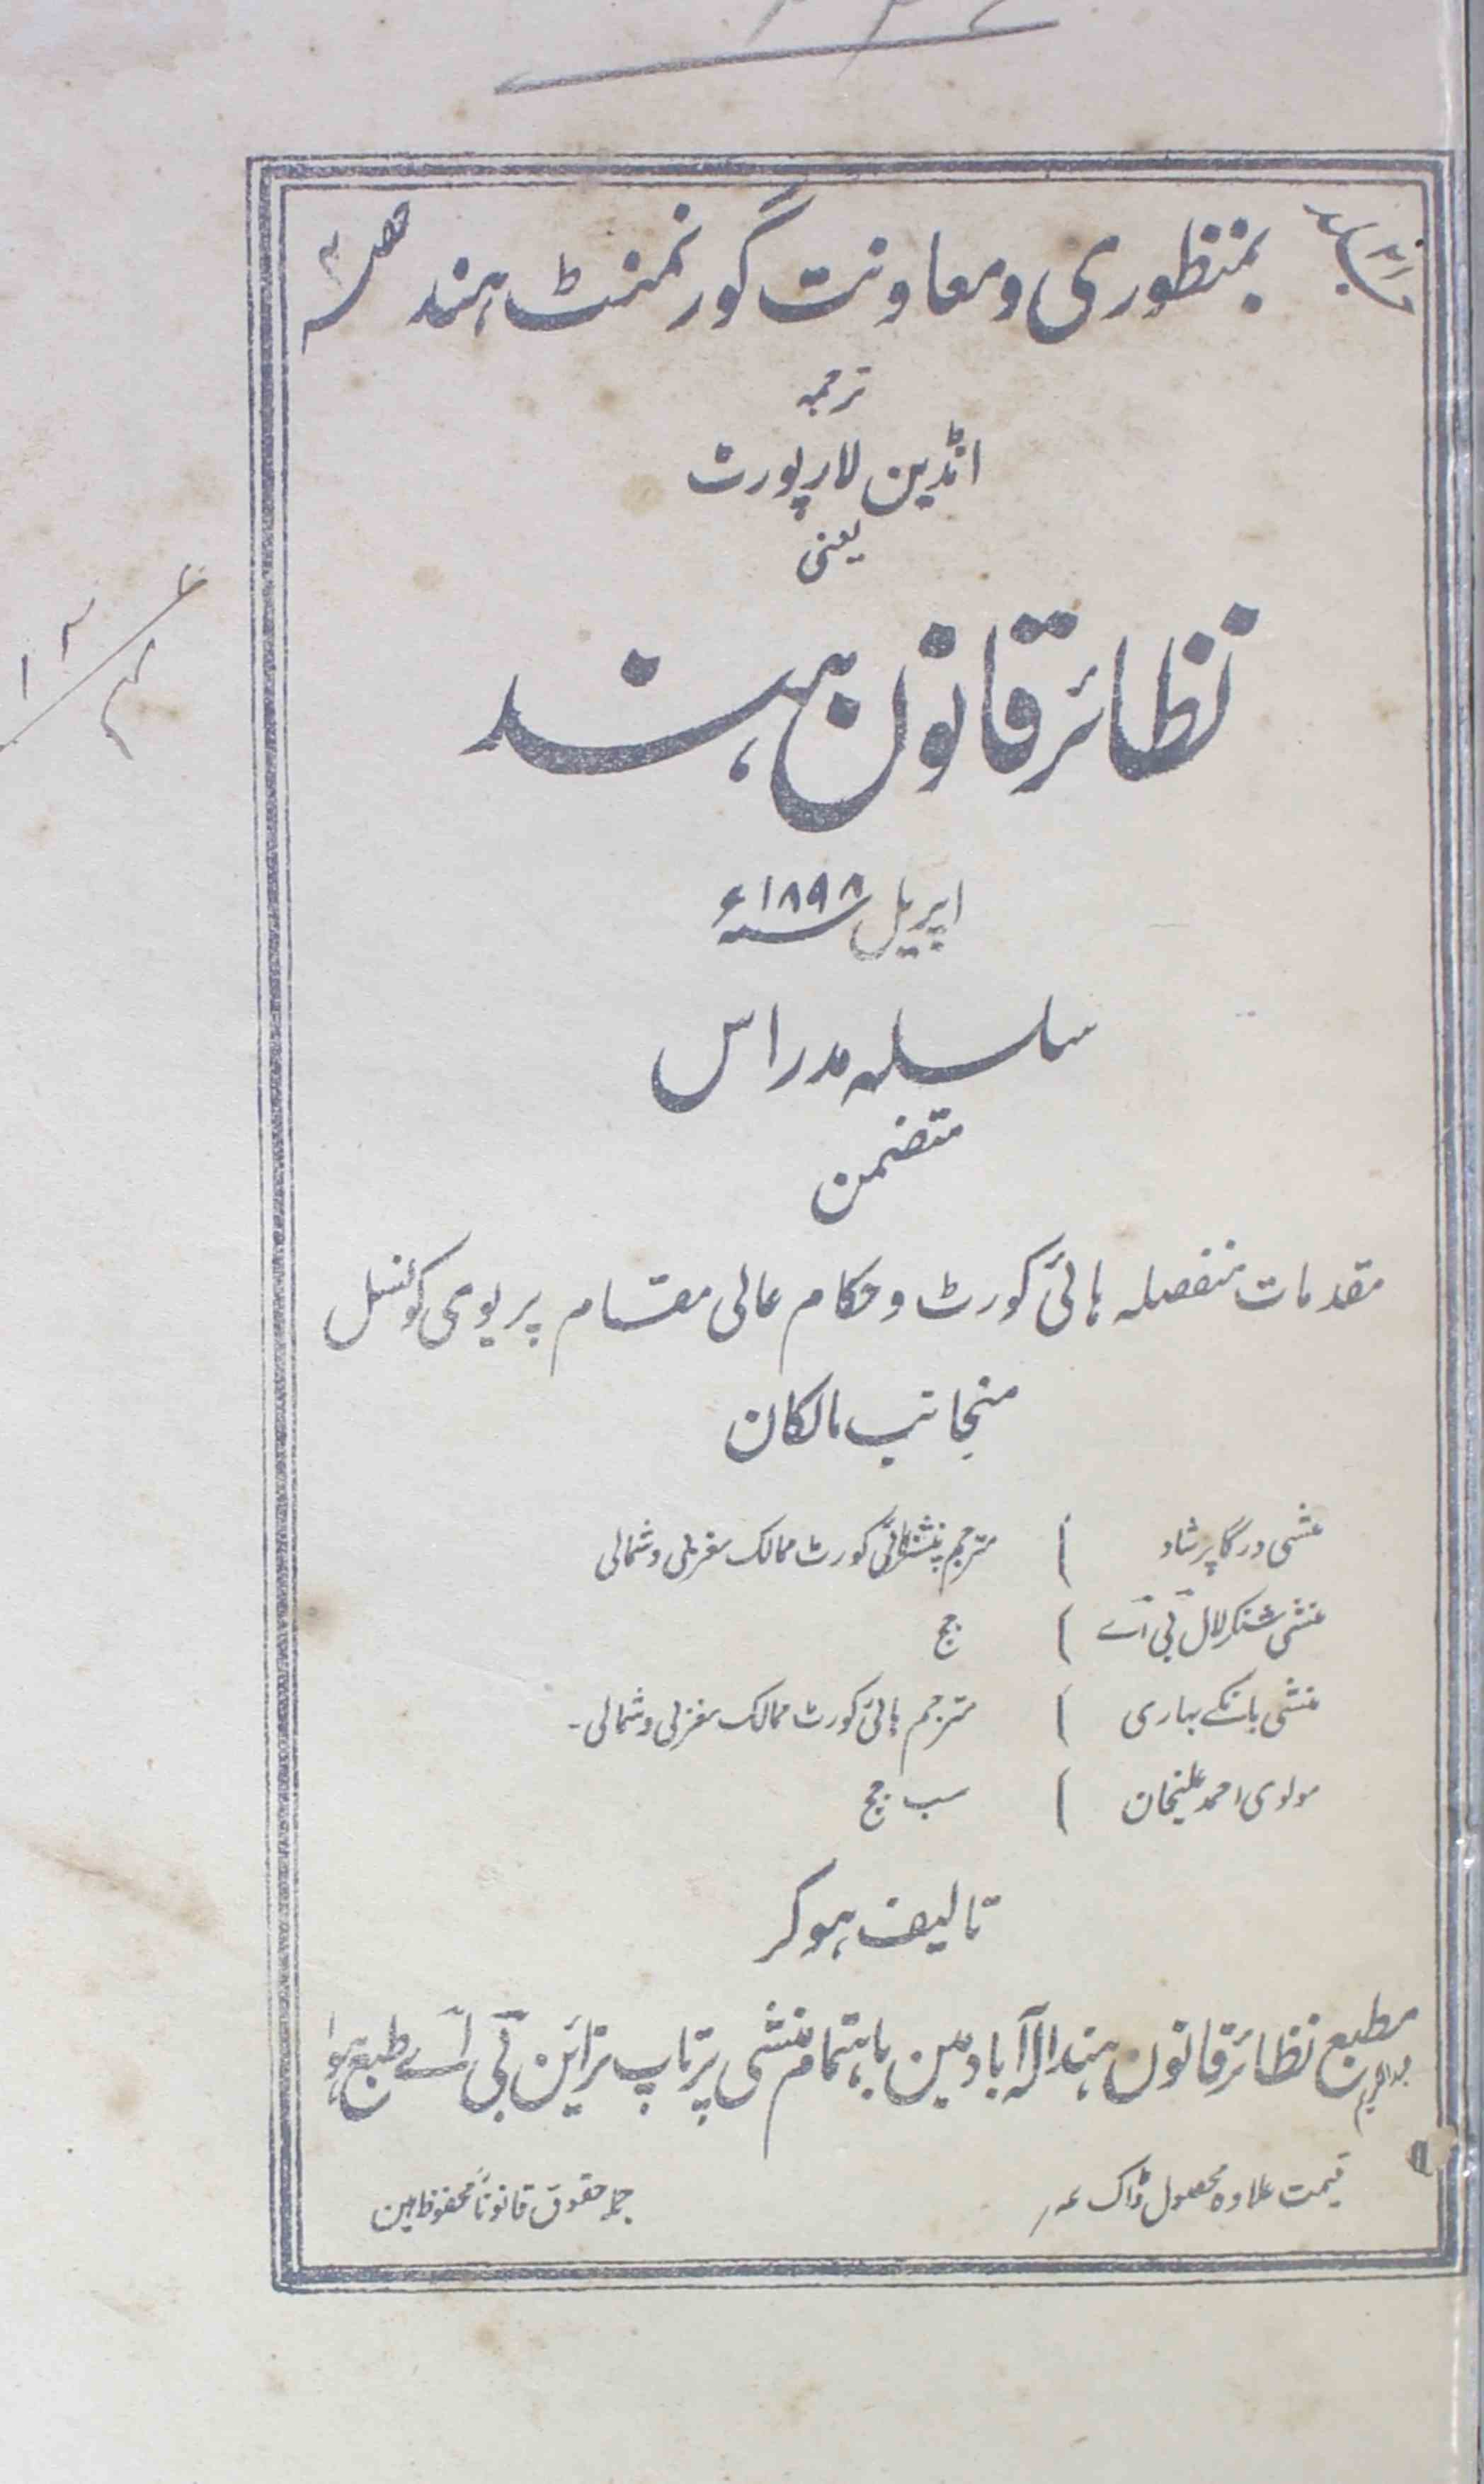 بمنظوری و معاونت گورنمنٹ ہند حصہ ۴
ترجمہ
انڈین لا رپورٹ
یعنی
نظائر قانون ہند
اپریل ۱۸۹۸ء
سلسلہ مدراس
متضمن
مقدمات منفصلہ ہائی کورٹ و حکام عالی مقام پریوی کونسل
منجانب مالکان
منشی درگا پرشاد ) مترجم پنشنر ہائی کورٹ ممالک مغربی و شمالی
منشی شنکر لال بی اے ) جج
منشی بانکے بہاری ) مترجم ہائی کورٹ ممالک مغربی و شمالی۔
مولوی احمد علیخان ) سب جج
تالیف ہوکر
مطبع نظائر قانون ہند الہ آباد مین باہتمام منشی پرتاپ نراین بی اے طبع ہوا
قیمت علاوہ محصول ڈاک عہ/ جملہ حقوق قانوناً محفوظ ہین